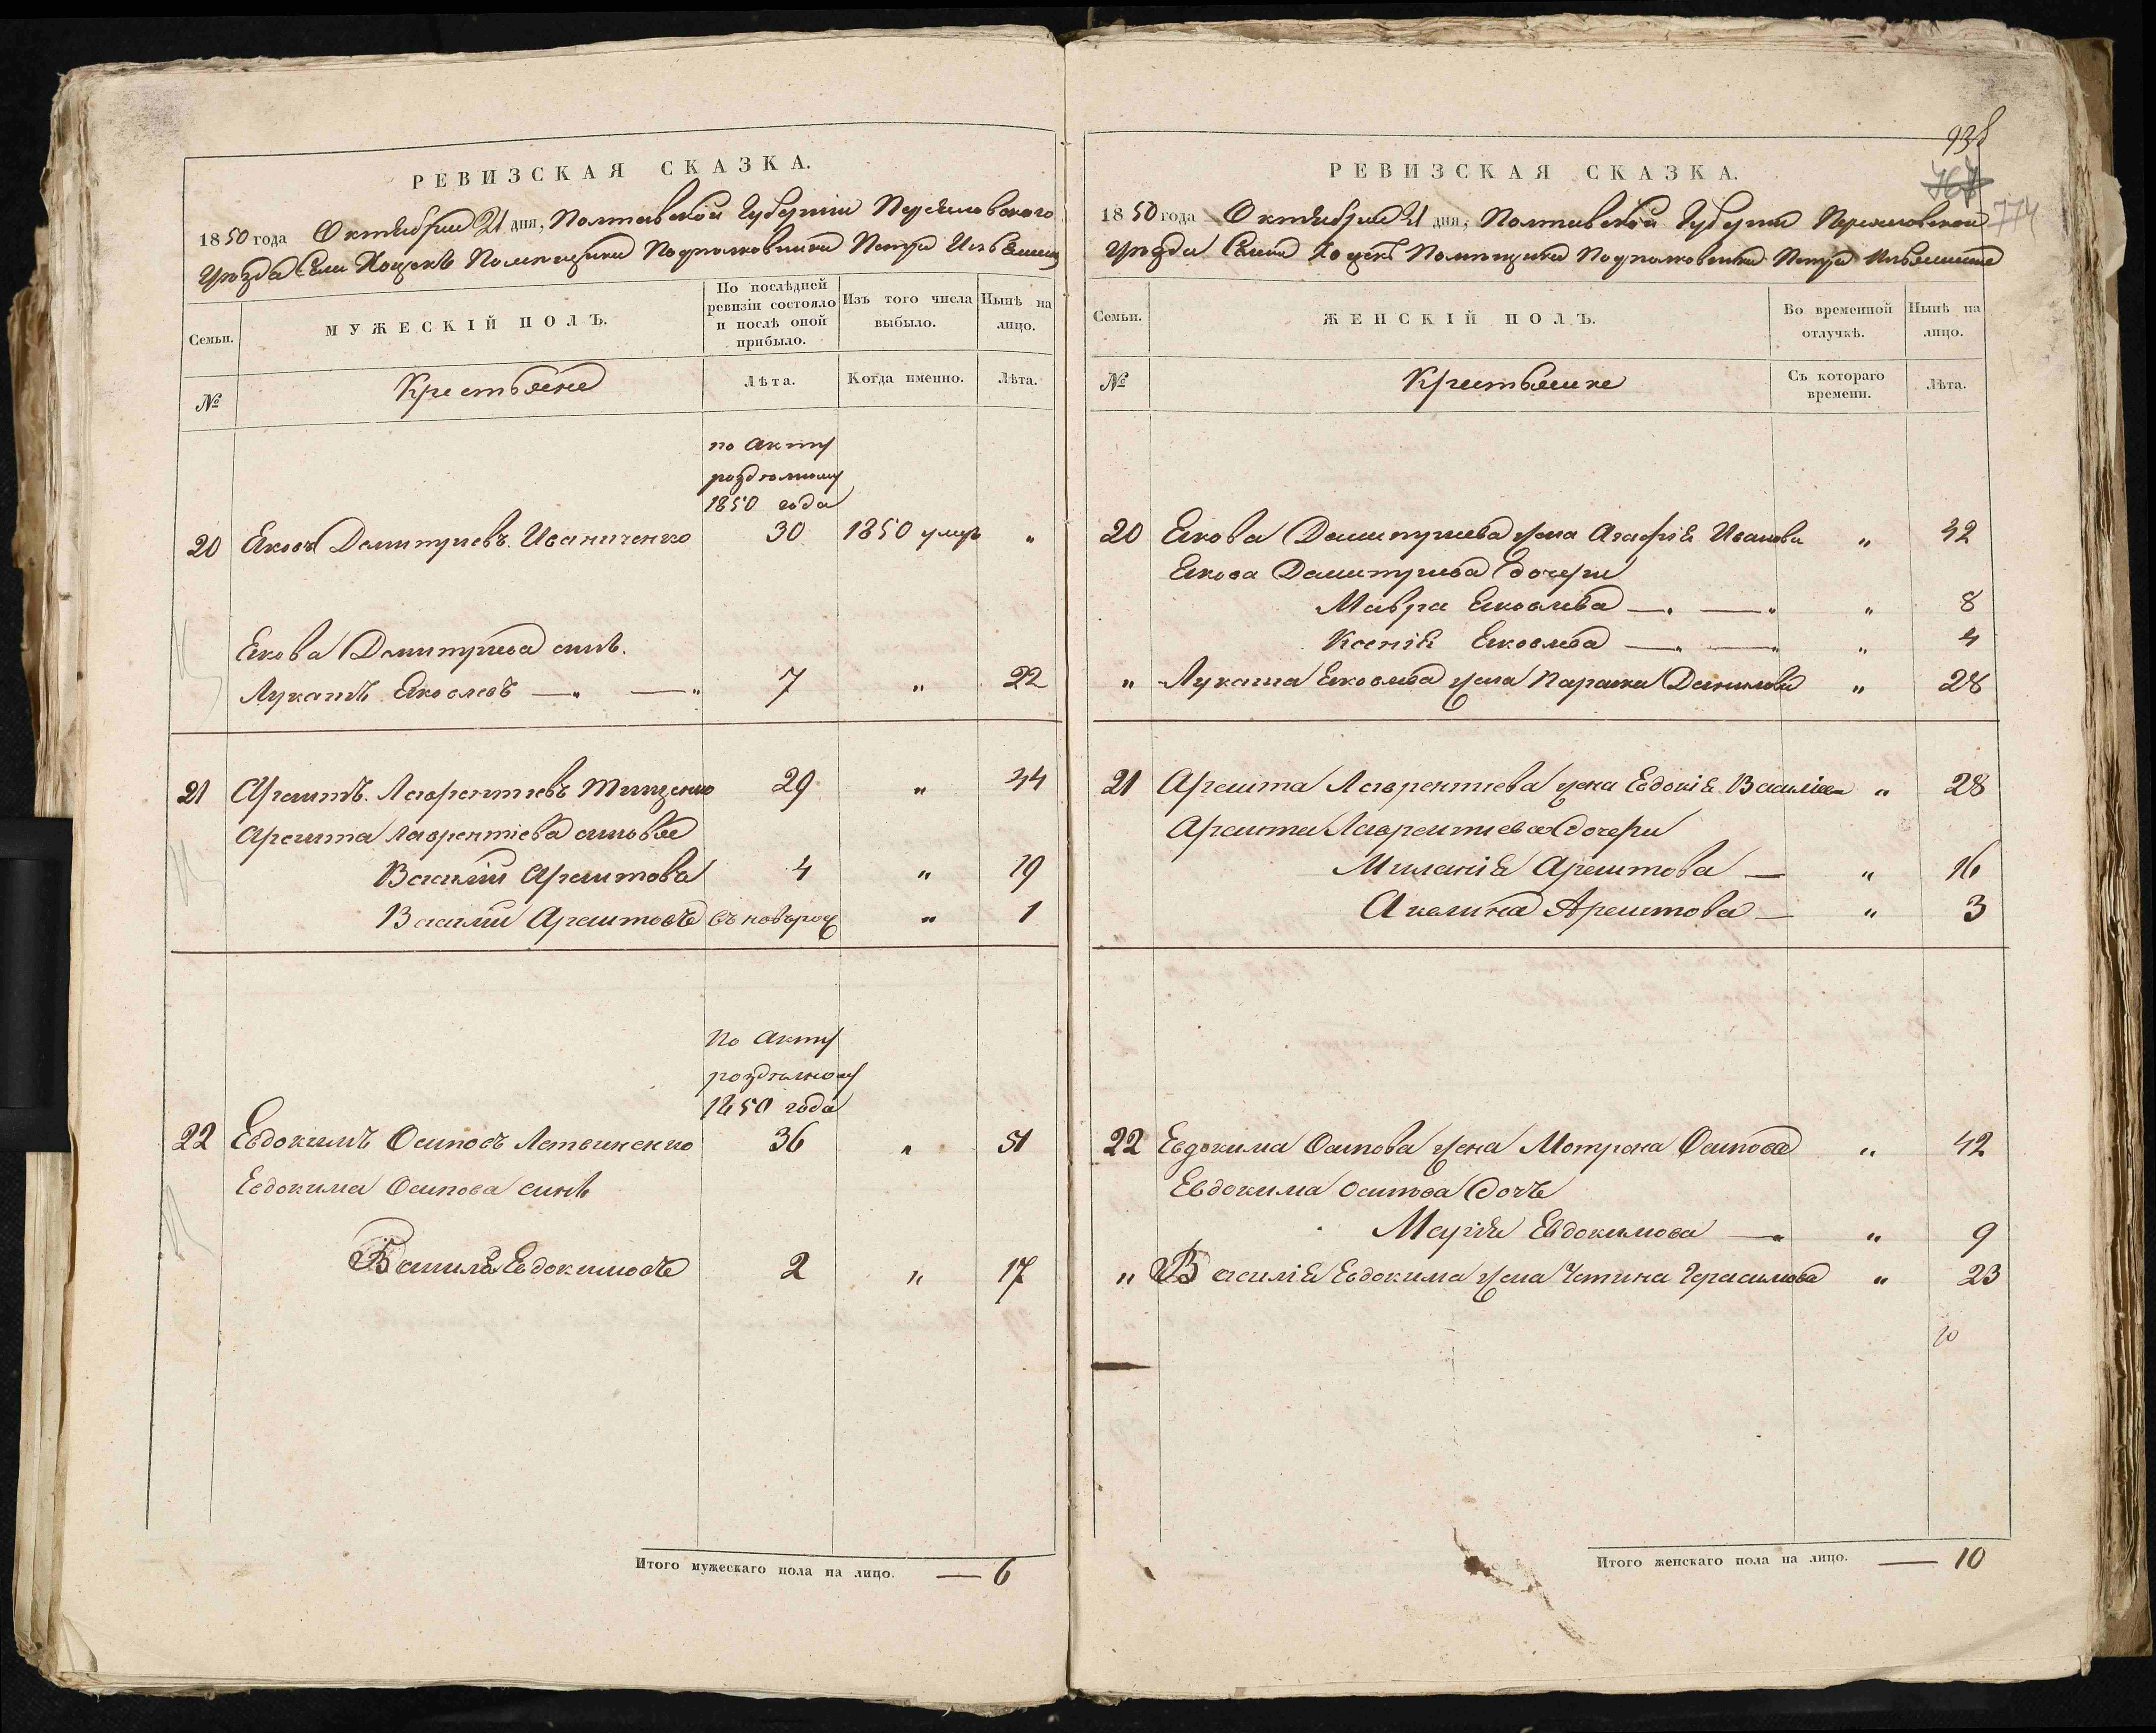 РЕВИЗСКАЯ СКАЗКА.
1850 года Октября 21 дня, Полтавской Губернии Переяславского
Уезда Села Помещика Подполковника Петра
Семьи.
МУЖЕСКІЙ ПОЛЪ.
По послѣдней
ревизіи состояло
и послѣ оной
прибыло.
Изъ того числа
выбыло.
Нынѣ на
лицо.
№
Крестьяне
Лѣта.
Когда именно.
Лѣта.
по акту
роздельному
1850 года
20 Яковъ Демитриевъ Иваниченко 30 1850 умеръ "
Якова Демитриева синъ.
Лукашъ Яковлевъ — " — " 7 " 22
21 Арештъ Лаврентиевъ Тищенко 29 " 44
Арешта Лаврентіева синовья
Василій Арештова 4 " 19
Василий Арештовъ вновьрож " 1
По акту
роздельному
1850 года
22 Евдокимъ Осиповъ Литвиненко 36 " 51
Евдокима Осипова синъ
Василь Евдокимовъ 2 " 17
Итого мужескаго пола на лицо. — 6
938
774
РЕВИЗСКАЯ СКАЗКА.
1850 года Октября 21 дня, Полтавской Губернии Переяславского
Уезда Села Помещика Подполковника Петра
Семьи.
ЖЕНСКІЙ ПОЛЪ.
Во временной
отлучкѣ.
Нынѣ на
лицо.
№
Крестьянке
Съ котораго
времени.
Лѣта.
20 Якова Демитриева жена Агафія Иванова " 42
Якова Демитриева дочери
Мавра Яковлева — " — " " 8
Ксенія Яковлева — " — " " 4
" Лукаша Яковлева жена Параска Данилова " 28
21 Арешта Лаврентиева жена Евдокія Василіева " 28
Арешта Лаврентиева дочери
Миланія Арештова — " 16
Акелина Арештова — " 3
22 Евдокима Осипова жена Мотрона Осипова " 42
Евдокима Осипова дочъ
Марія Евдокимова — " " 9
" Василія Евдокима жена Устина Герасимова " 23
10
Итого женскаго пола на лицо. — 10